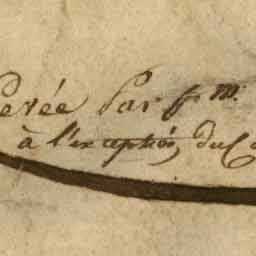 Levée Par f m.
à l'exception, du Ca